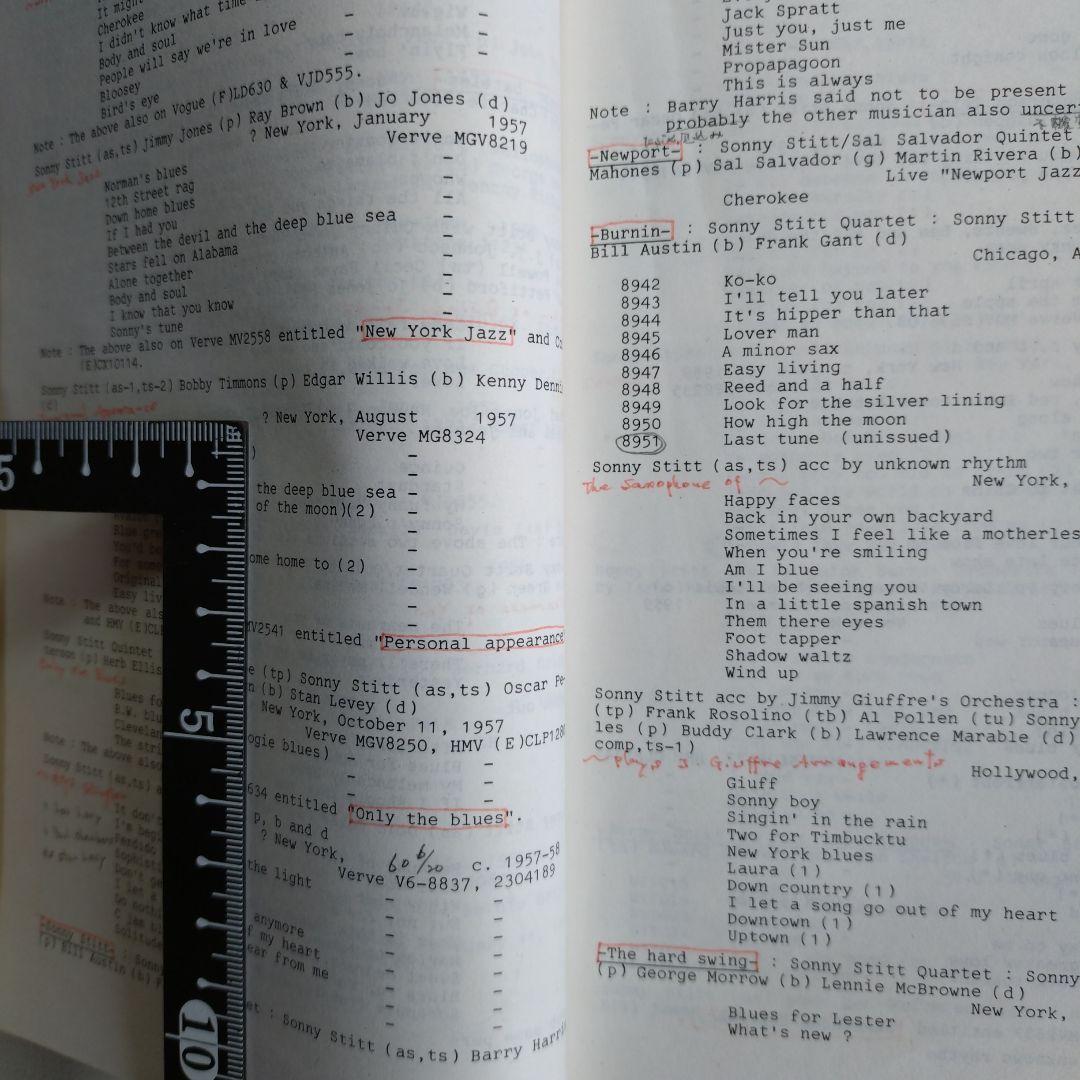 It migh
Cherokee
I didn't know what time
Body and soul
People will say we're in love
Bloosey
Bird's eye
Note : The above also on Vogue (F)LD630 & VJD555.
Sonny Stitt (as,ts) Jimmy Jones (p) Ray Brown (b) Jo Jones (d)
? New York, January 1957
Verve MGV8219
New York Jazz
Norman's blues
12th Street rag
Down home blues
If I had you
Between the devil and the deep blue sea
Stars fell on Alabama
Alone together
Body and soul
I know that you know
Sonny's tune
Note : The above also on Verve MV2558 entitled "New York Jazz" and C
(E)CX10114.
Sonny Stitt (as-1,ts-2) Bobby Timmons (p) Edgar Willis (b) Kenny Denn
(d)
Personal Appearance
? New York, August 1957
Verve MG8324
)
the deep blue sea
of the moon)(2)
ome home to (2)
MV2541 entitled "Personal appearance
e (tp) Sonny Stitt (as,ts) Oscar Pe
n (b) Stan Levey (d)
New York, October 11, 1957
Verve MGV8250, HMV (E)CLP1280
ogie blues)
634 entitled "Only the blues".
p, b and d
? New York, c. 1957-58
Verve V6-8837, 2304189
the light
anymore
f my heart
ear from me
et : Sonny Stitt (as,ts) Barry Harri
Note : The above als
and HMV (E)CL
Sonny Stitt Quintet
terson (p) Herb Ellis
Only the Blues
Blues fo
B.W. blu
Clevelan
The stri
Note : The above also
Sonny Stitt (as,ts) a
It don'
I'm begi
Perdido
Sophist
Don't ge
I let a
Do nothi
C jam bl
Solitude
-Sonny Stitt- : Sonny
(p) Bill Austin (b) F
5
5
10
Jack Spratt
Just you, just me
Mister Sun
Propapagoon
This is always
Note : Barry Harris said not to be present
probably the other musician also uncer
-Newport- : Sonny Stitt/Sal Salvador Quintet
Mahones (p) Sal Salvador (g) Martin Rivera (b)
Live "Newport Jazz
Cherokee
-Burnin- : Sonny Stitt Quartet : Sonny Stitt
Bill Austin (b) Frank Gant (d)
Chicago, A
8942 Ko-ko
8943 I'll tell you later
8944 It's hipper than that
8945 Lover man
8946 A minor sax
8947 Easy living
8948 Reed and a half
8949 Look for the silver lining
8950 How high the moon
8951 Last tune (unissued)
Sonny Stitt (as,ts) acc by unknown rhythm
The Saxophone of ~
New York,
Happy faces
Back in your own backyard
Sometimes I feel like a motherles
When you're smiling
Am I blue
I'll be seeing you
In a little spanish town
Them there eyes
Foot tapper
Shadow waltz
Wind up
Sonny Stitt acc by Jimmy Giuffre's Orchestra :
(tp) Frank Rosolino (tb) Al Pollen (tu) Sonny
les (p) Buddy Clark (b) Lawrence Marable (d)
comp,ts-1)
~ plays J Giuffre Arrangements
Hollywood,
Giuff
Sonny boy
Singin' in the rain
Two for Timbucktu
New York blues
Laura (1)
Down country (1)
I let a song go out of my heart
Downtown (1)
Uptown (1)
-The hard swing- : Sonny Stitt Quartet : Sonny
(p) George Morrow (b) Lennie McBrowne (d)
New York,
Blues for Lester
What's new ?